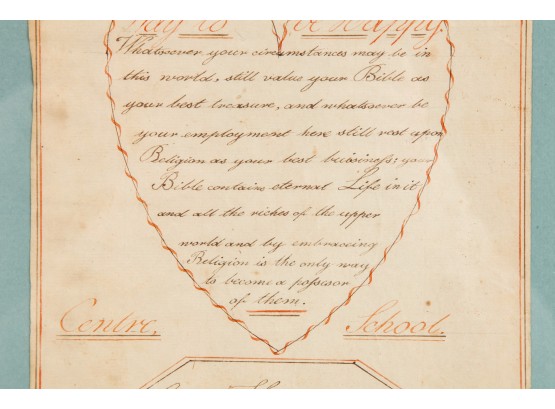 Way to be Happy.
Whatsoever your circumstances may be in
this world, still value your Bible as
your best treasure, and whatsoever be
your employment here still rest upon
Religion as your best buisiness; your
Bible contains eternal Life in it
and all the riches of the upper
world and by embracing
Religion is the only way
to become a possesor
of them.
Centre. School.